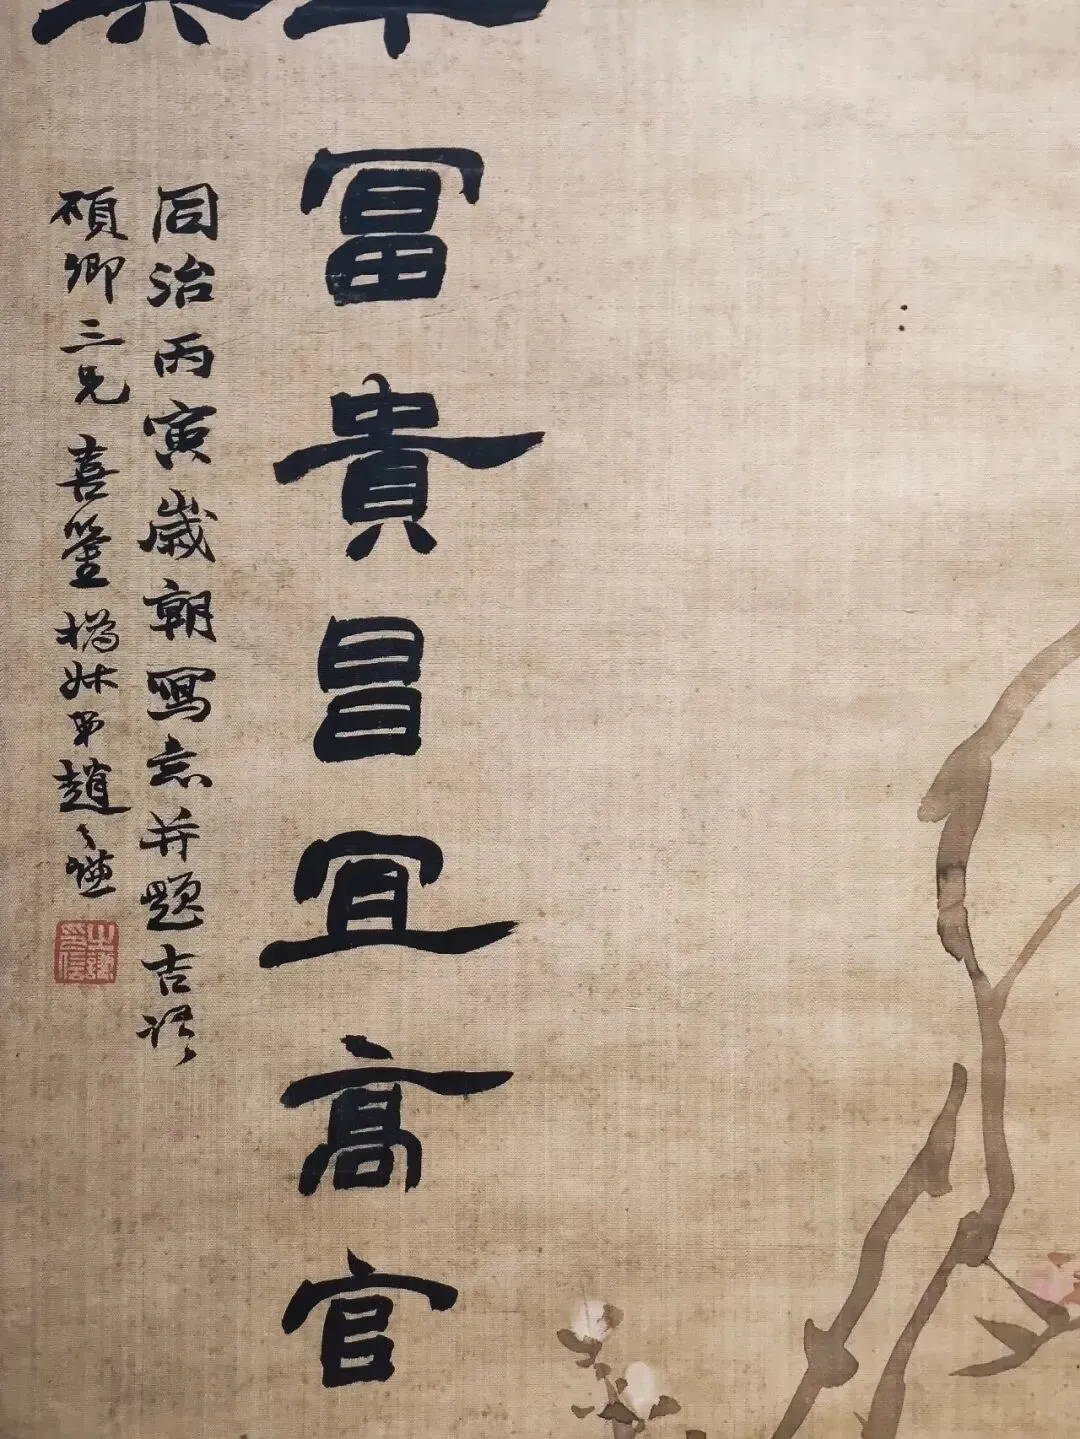 富貴昌宜高官
同治丙寅歲朝寫意并題吉語
碩卿三兄喜鑒撝叔弟趙之謙